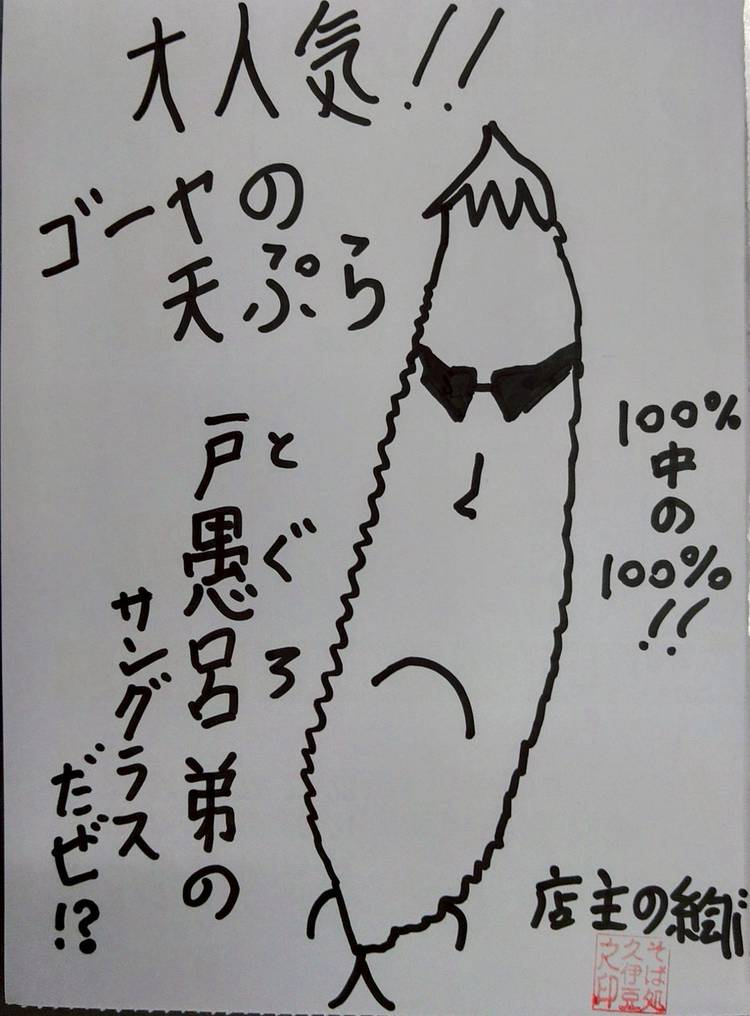 大人気!!
ゴーヤの
天ぷら
戸愚呂弟の
とぐろ
サングラス
だゼ!?
100%
中の
100%
!!
店主の絵!!
そば処
久伊豆
之印